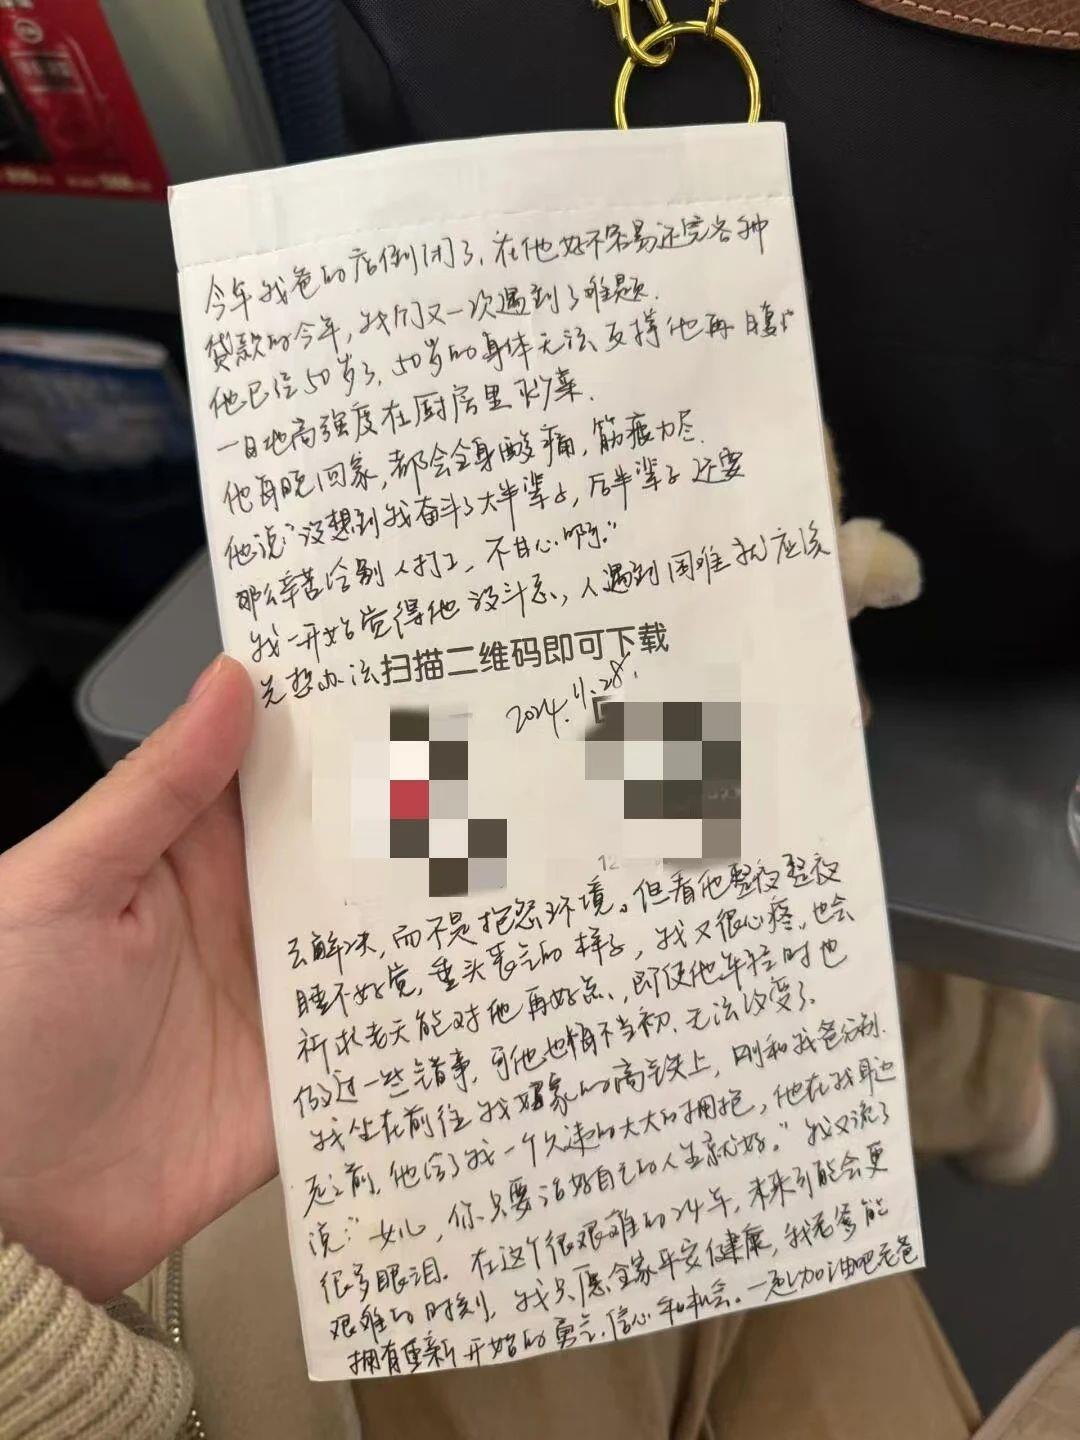 今年我爸的店倒闭了,在他好不容易还完各种
贷款的今年,我们又一次遇到了难题.
他已经50岁了,50岁的身体无法支撑他再日复
一日地高强度在厨房里炒菜.
他每晚回家,都会全身酸痛,筋疲力尽.
他说:"没想到我奋斗了大半辈子,后半辈子还要
那么辛苦给别人打工,不甘心啊。"
我一开始觉得他没斗志,人遇到困难就应该
先想办法
扫描二维码即可下载
2024.11.28.
12
去解决,而不是抱怨环境。但看他整夜整夜
睡不好觉,垂头丧气的样子,我又很心疼,也会
祈求老天能对他再好点,即使他年轻时也
做过一些错事,可他也悔不当初,无法改变了.
我坐在前往我家的高铁上,刚和我爸分别.
走之前,他给了我一个久违的大大的拥抱,他在我耳边
说:"女儿,你只要活好自己的人生就好。"我又流了
很多眼泪。在这个很艰难的24年,未来可能会更
艰难的时刻,我只愿全家平安健康,我老爹能
拥有重新开始的勇气、信心和机会。一起加油吧老爸